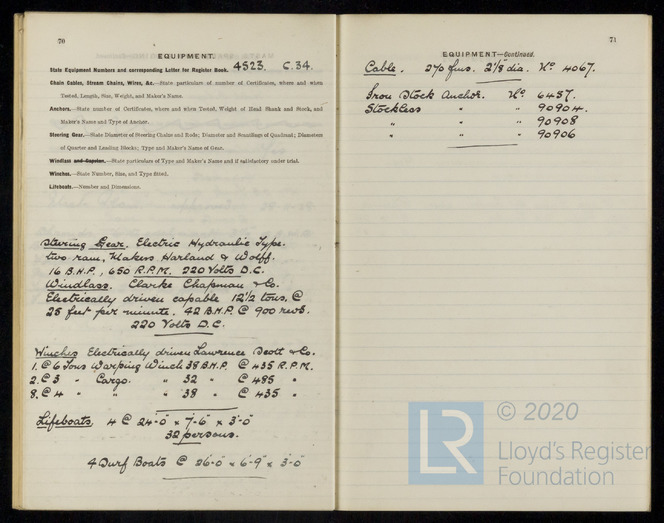 70
EQUIPMENT.
State Equipment Numbers and corresponding Letter for Register Book. 4523. C.34.
Chain Cables, Stream Chains, Wires, &c.—State particulars of number of Certificates, where and when
Tested, Length, Size, Weight, and Maker's Name.
Anchors.—State number of Certificates, where and when Tested, Weight of Head Shank and Stock, and
Maker's Name and Type of Anchor.
Steering Gear.—State Diameter of Steering Chains and Rods; Diameter and Scantlings of Quadrant; Diameters
of Quarter and Leading Blocks; Type and Maker's Name of Gear.
Windlass and Capstan.—State particulars of Type and Maker's Name and if satisfactory under trial.
Winches.—State Number, Size, and Type fitted.
Lifeboats.—Number and Dimensions.
Steering Gear. Electric Hydraulic Type.
two ram, Makers, Harland & Wolff.
16 B.H.P., 650 R.P.M. 220 Volts D.C.
Windlass. Clarke Chapman & Co.
Electrically driven capable 12½ tons. @
25 feet per minute. 42 B.H.P. @ 900 revs.
220 Volts D.C.
Winches Electrically driven Lawrence Scott & Co.
1. @ 6 Tons Warping Winch 38 B.H.P. @ 435 R.P.M.
2. @ 3 " Cargo. " 32 " @ 485 "
8. @ 4 " " " 38 " @ 435 "
Lifeboats, 4 @ 24'-0" x 7'-6" x 3'-0"
32 persons.
4 Surf Boats @ 26'-0" x 6'-9" x 3'-0"
71
EQUIPMENT—Continued.
Cable. 270 fms. 2⅛" dia. No 4067.
Iron Stock Anchor. No. 6457.
Stockless " " 90904.
" " " 90908
" " " 90906
© 2020
LR
Lloyd's Register
Foundation